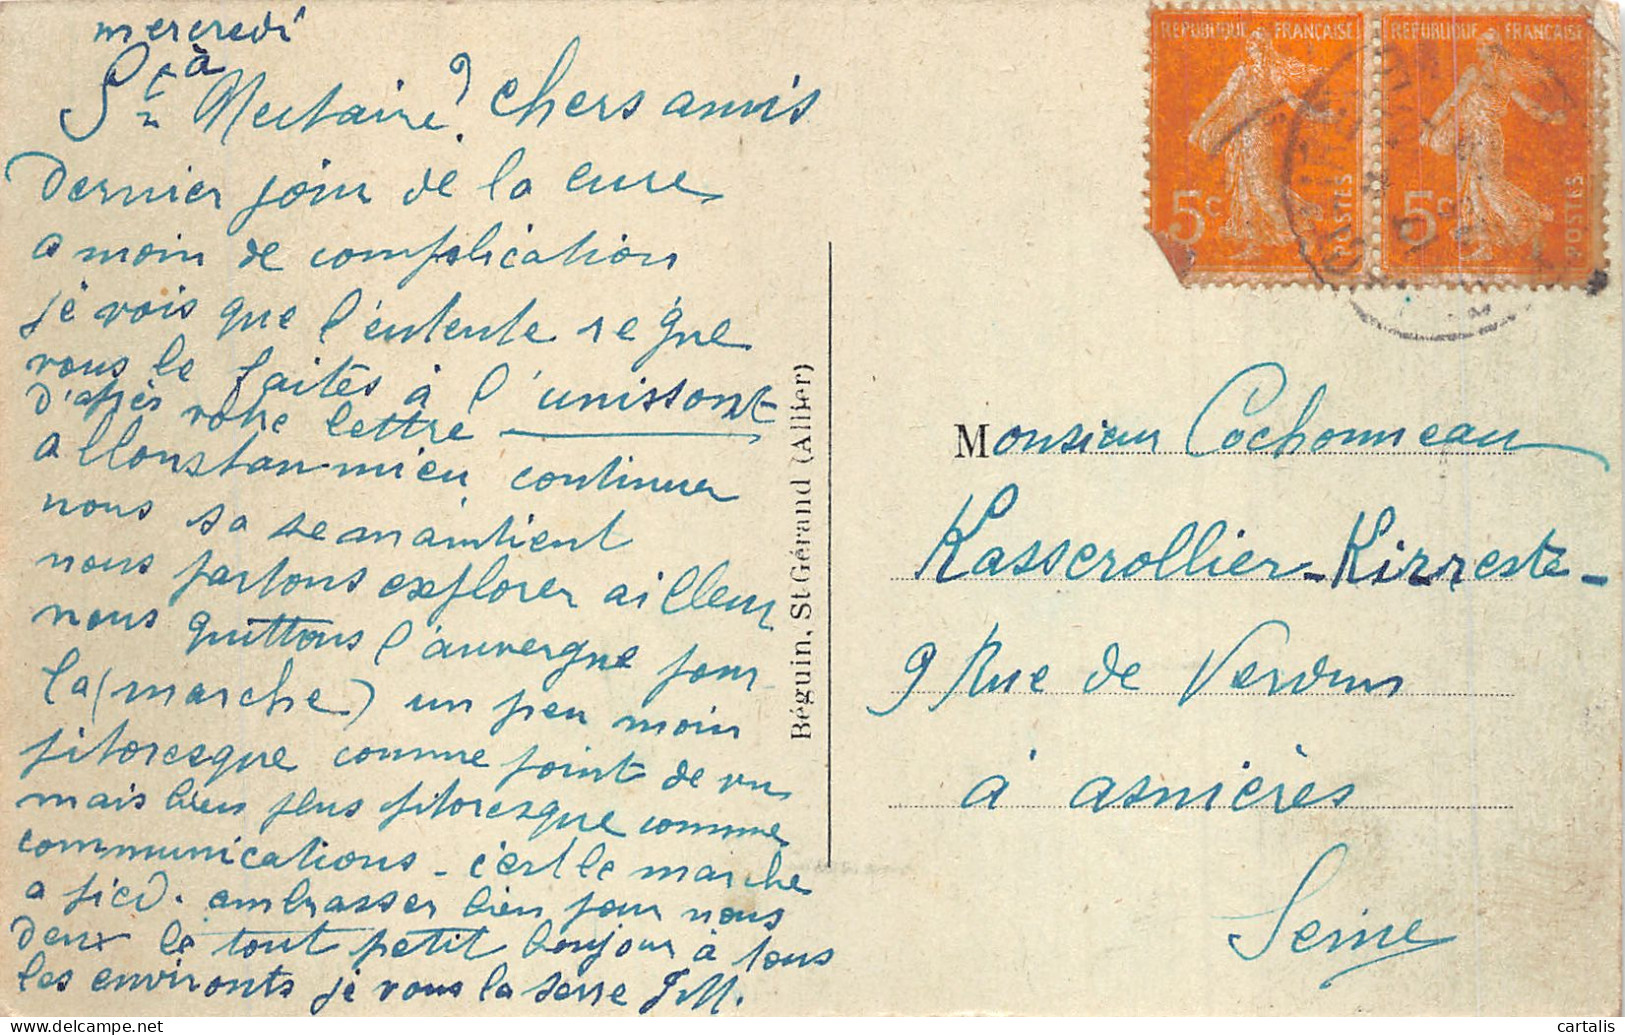 mercredi
à
St Nectaire ? chers amis
Dernier jour de la cure
a moin de complication
je vois que l'entente regne
vous le faites à l'unissont
d'après votre lettre
allons tan mieu continuer
nous sa se maintient
nous partons explorer ailleur
nous quittons l'auvergne pour
la (marche) un peu moin
pitoresque comme point de vu
mais bien plus pitoresque comme
communications - c'est le marche
a pied. embrasser bien pour nous
deux le tout petit bonjour à tous
les environts je vous la serre JM.
Béguin, St-Gérand (Allier)
REPUBLIQUE FRANÇAISE
5c POSTES
REPUBLIQUE FRANÇAISE
5c POSTES
Monsieur Cochonneau
Kasserollier-Kirreste-
9 Rue de Verdun
à asnières
Seine
cartalis
delcampe.net